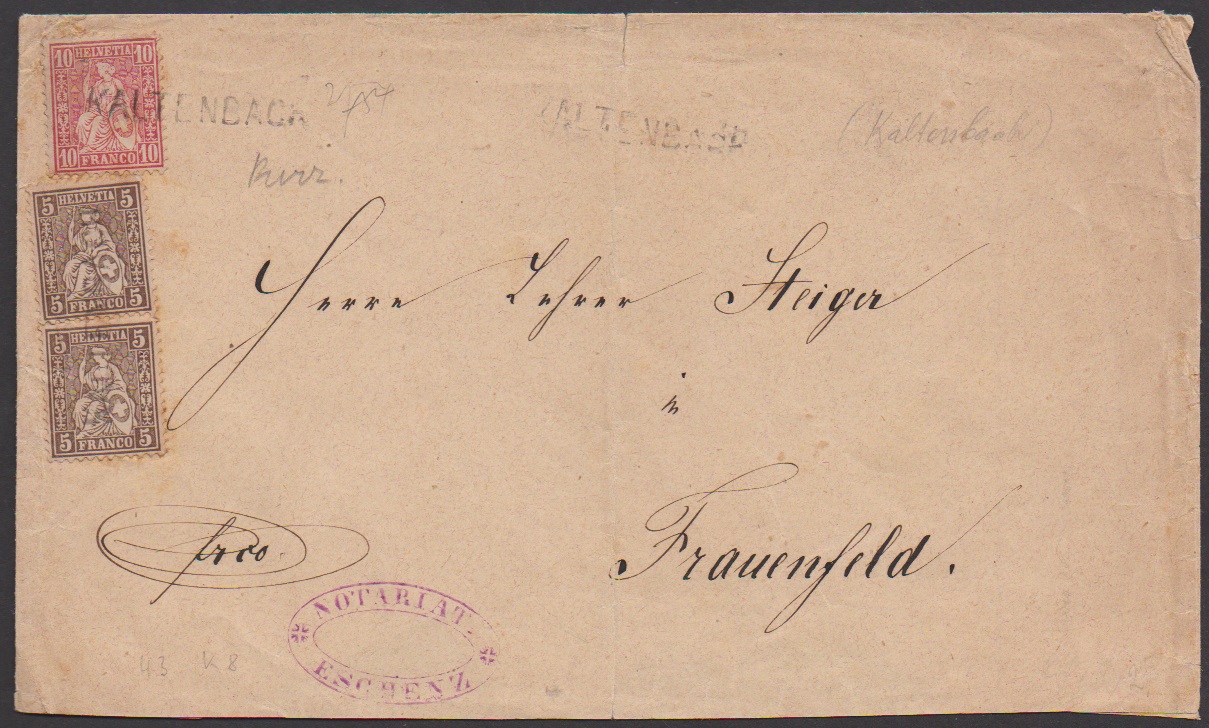 10 HELVETIA 10
10 FRANCO 10
KALTENBACH
KALTENBACH
(Kaltenbach)
5 HELVETIA 5
5 FRANCO 5
5 HELVETIA 5
5 FRANCO 5
Herrn Lehrer Steiger
in
Frauenfeld.
frco.
NOTARIAT.
ESCHENZ
43 K8